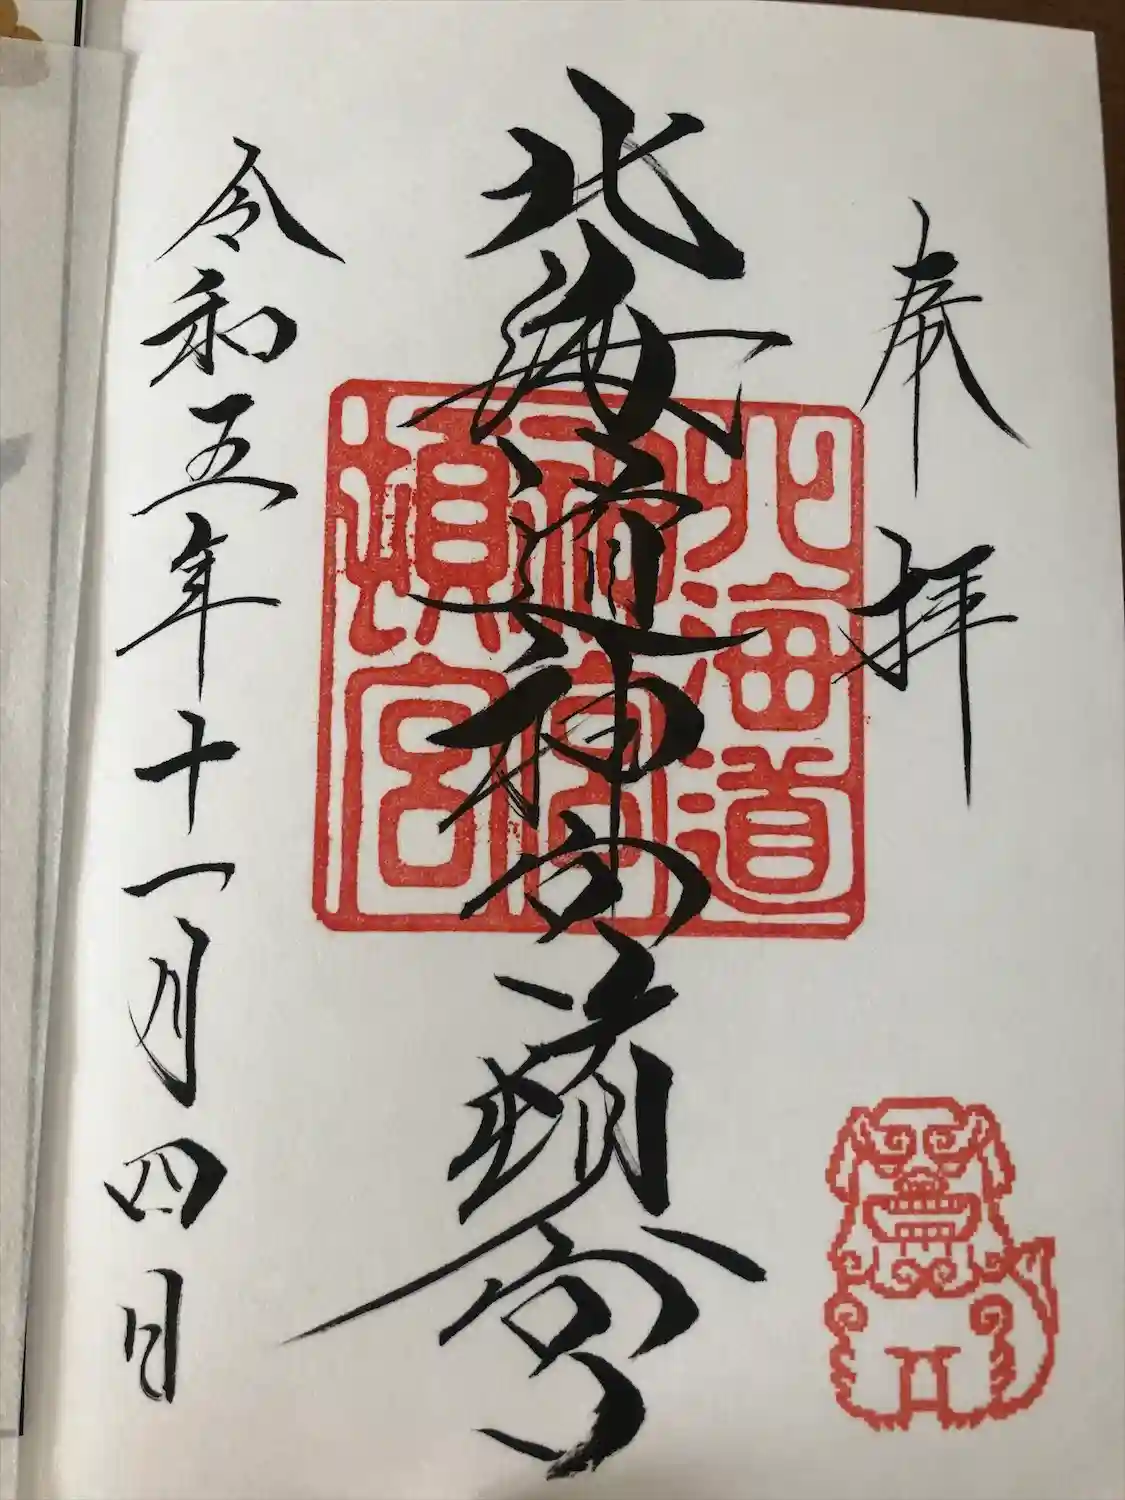 奉拝
北海道神宮頓宮
北海道
神宮
頓宮
令和五年十一月四日